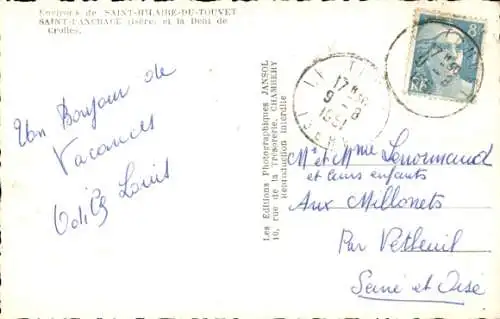 Environs de SAINT-HILAIRE-DU-TOUVET
SAINT-PANCRACE (Isère) et la Dent de
Crolles.
Un Bonjour de
Vacances
Louis
Les Editions Photographiques JANSOL
10, rue de la Trésorerie, CHAMBERY
Reproduction interdite
17 H30
9 - 8
1951
ISERE
17 H30
M et Mme Lenormand
et leurs enfants
Aux Millonets
Par Vetheuil
Seine et Oise